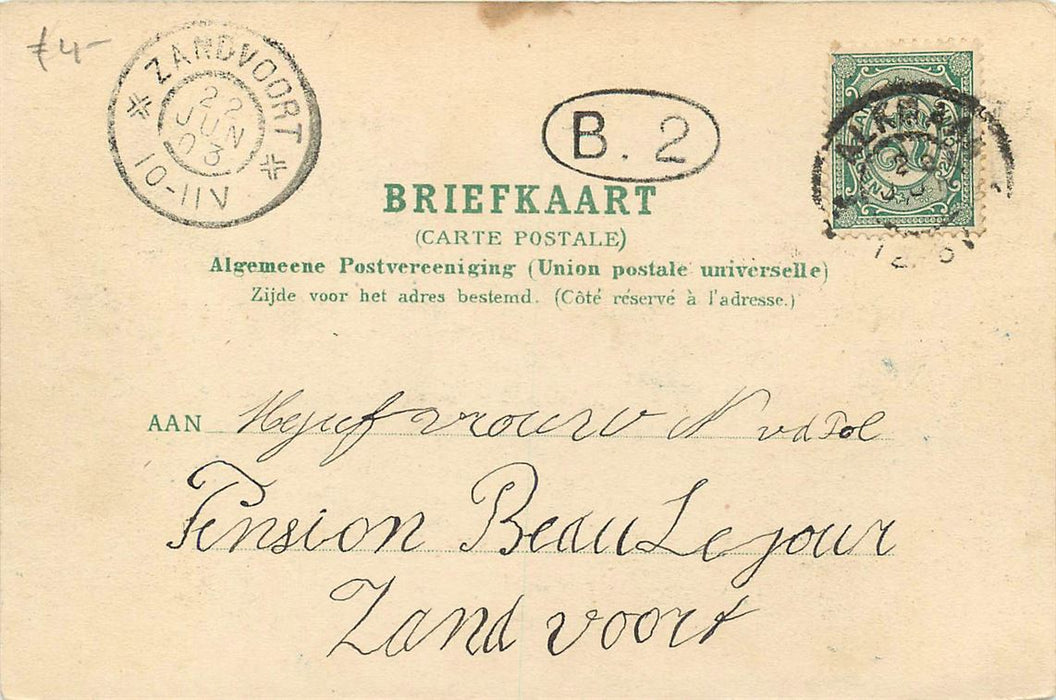 f 4-
ZANDVOORT
22
JUN
03
10-11V
B. 2
ALKMAAR
BRIEFKAART
(CARTE POSTALE)
Algemeene Postvereeniging (Union postale universelle)
Zijde voor het adres bestemd. (Côté réservé à l'adresse.)
AAN Mejufvrouw N vd Tol
Pension Beau Lejour
Zandvoort